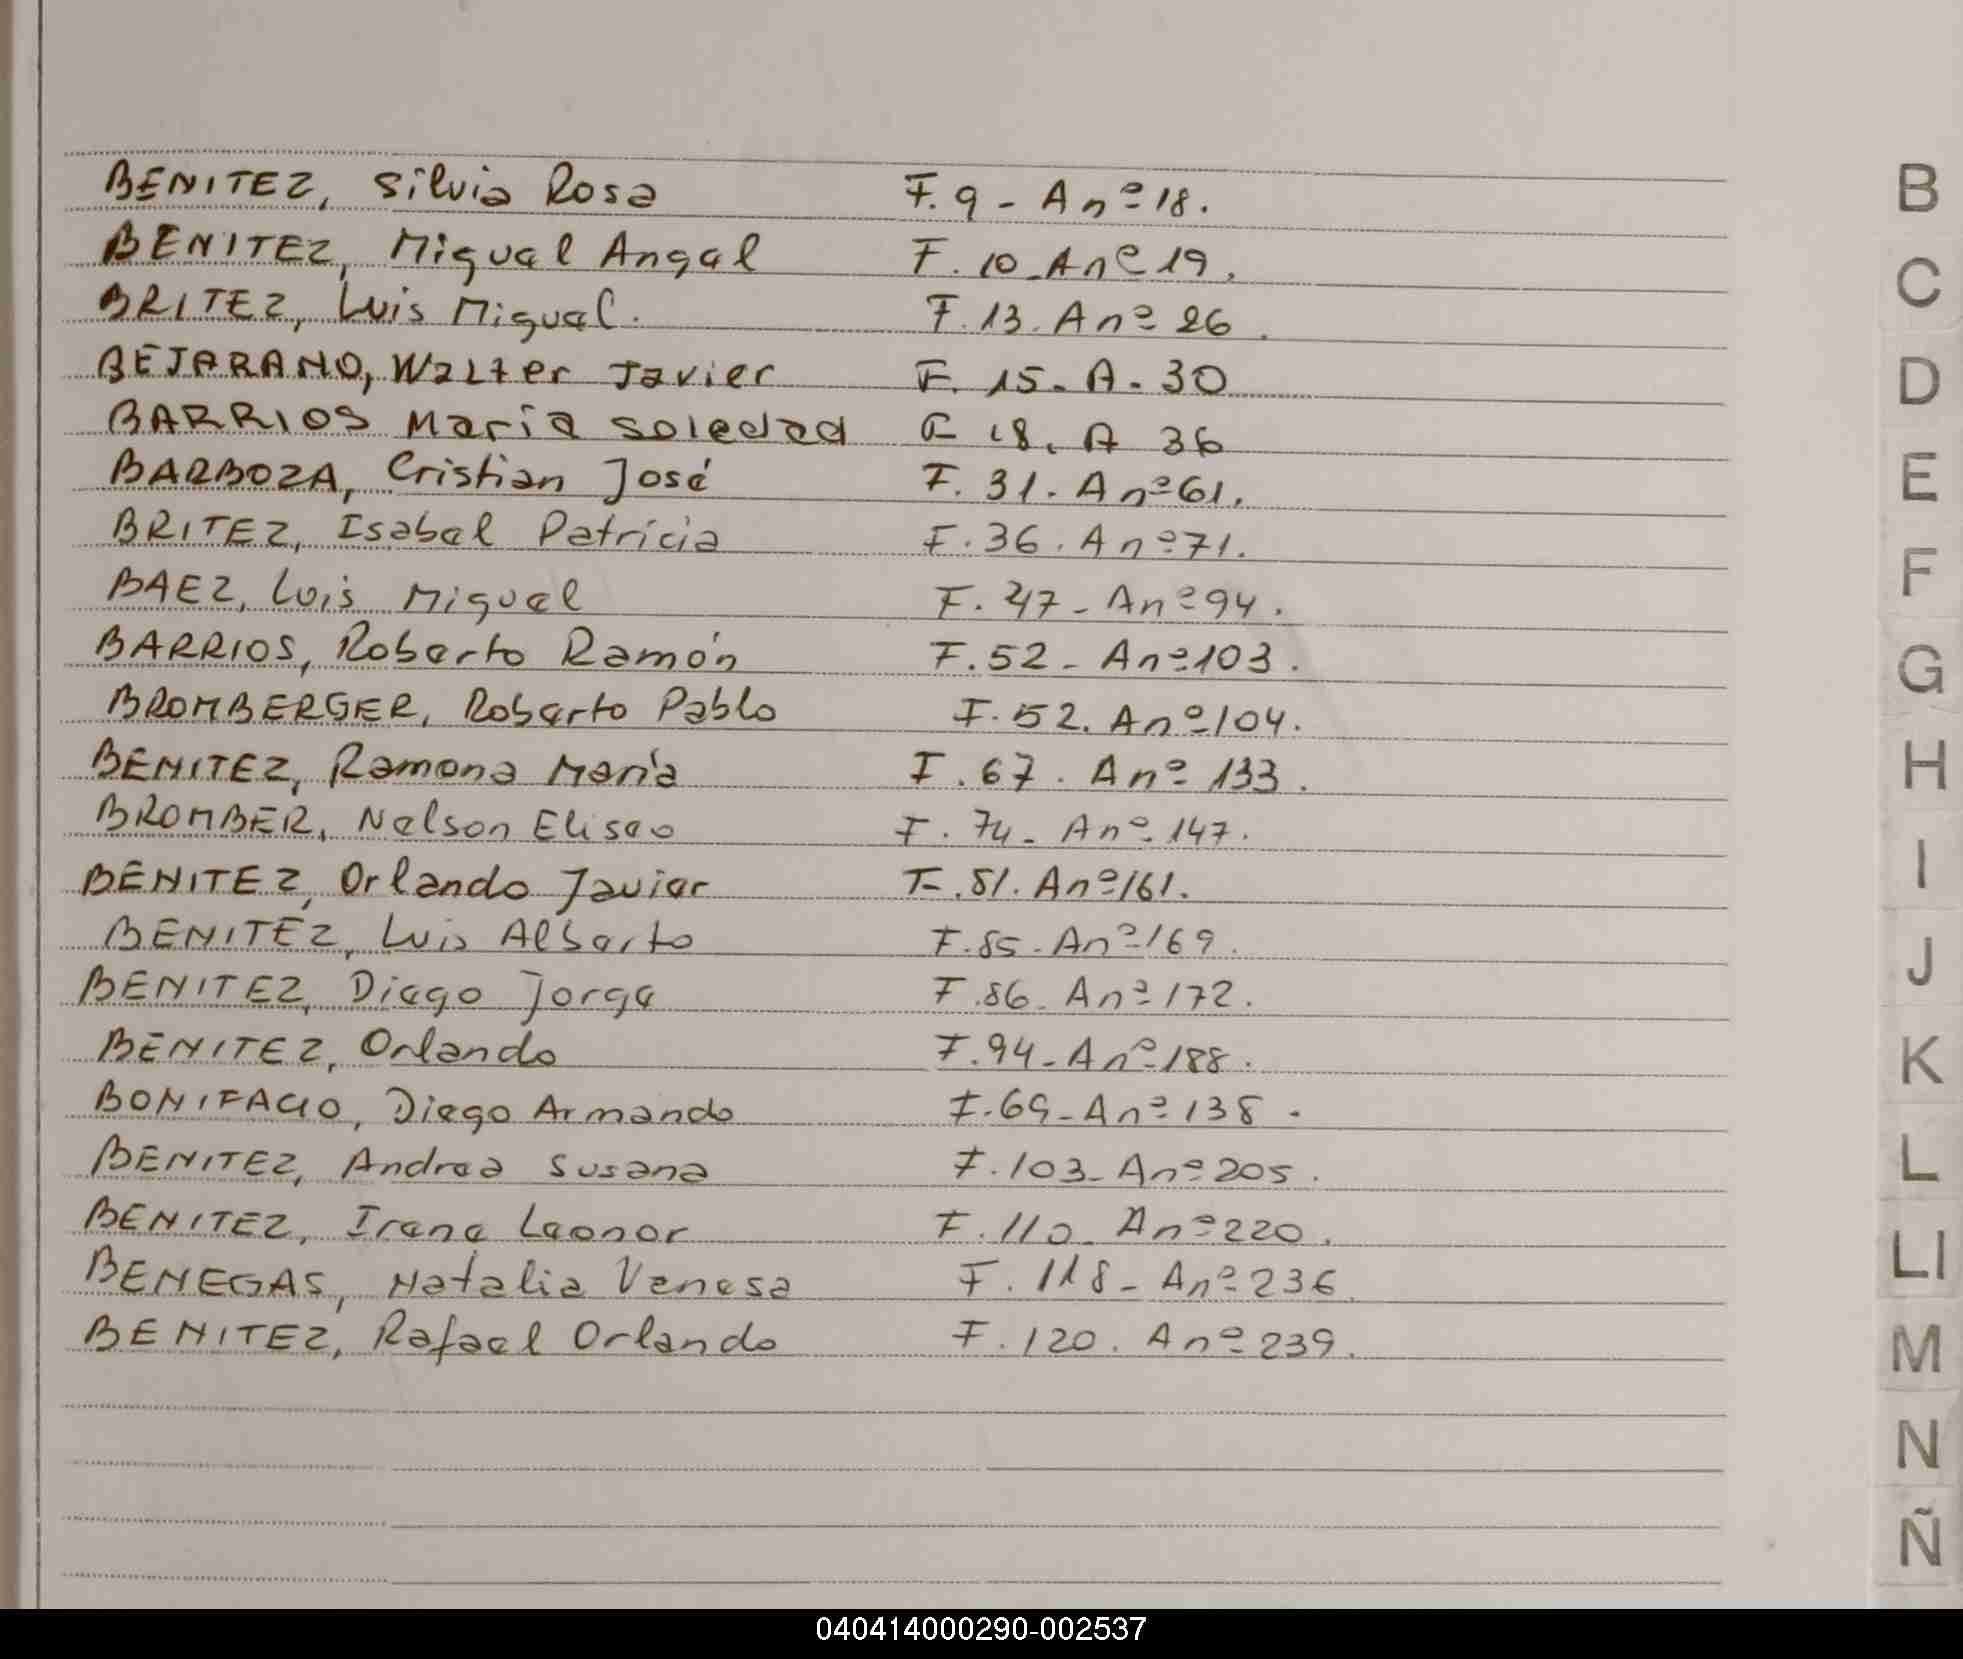 BENITEZ, Silvia Rosa F. 9 - A nº 18.
BENITEZ, Miguel Angel F. 10 - A nº 19.
BRITEZ, Luis Miguel. F. 13. A nº 26.
BEJARANO, Walter Javier F. 15. A. 30
BARRIOS María Soledad F 18. A 36
BARBOZA, Cristian José F. 31. A nº 61.
BRITEZ, Isabel Patricia F. 36. A nº 71.
BAEZ, Luis Miguel F. 47 - A nº 94.
BARRIOS, Roberto Ramón F. 52 - A nº 103.
BROMBERGER, Roberto Pablo F. 52. A nº 104.
BENITEZ, Ramona María F. 67. A nº 133.
BROMBER, Nelson Eliseo F. 74 - A nº 147.
BENITEZ, Orlando Javier F. 81. A nº 161.
BENITEZ, Luis Alberto F. 85 - A nº 169.
BENITEZ, Diego Jorge F. 86 - A nº 172.
BENITEZ, Orlando F. 94 - A nº 188.
BONIFACIO, Diego Armando F. 69 - A nº 138.
BENITEZ, Andrea Susana F. 103 - A nº 205.
BENITEZ, Irene Leonor F. 110 - A nº 220.
BENEGAS, Natalia Vanesa F. 118 - A nº 236.
BENITEZ, Rafael Orlando F. 120. A nº 239.
B
C
D
E
F
G
H
I
J
K
L
Ll
M
N
Ñ
040414000290-002537